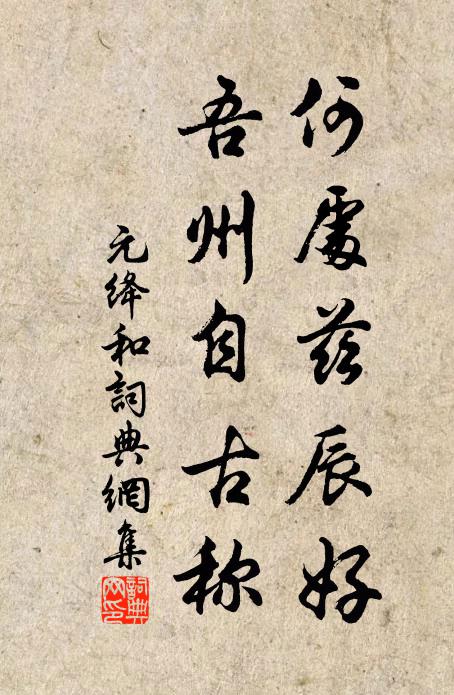 何處茲辰好
吾州自古称
元绛和詞典網集
詞典网印